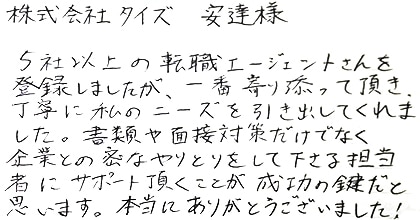 株式会社タイズ　安達様
5社以上の転職エージェントさんを
登録しましたが、一番寄り添って頂き、
丁寧に私のニーズを引き出してくれま
した。書類や面接対策だけでなく
企業との密なやりとりをして下さる担当
者にサポート頂くことが成功の鍵だと
思います。本当にありがとうございました!